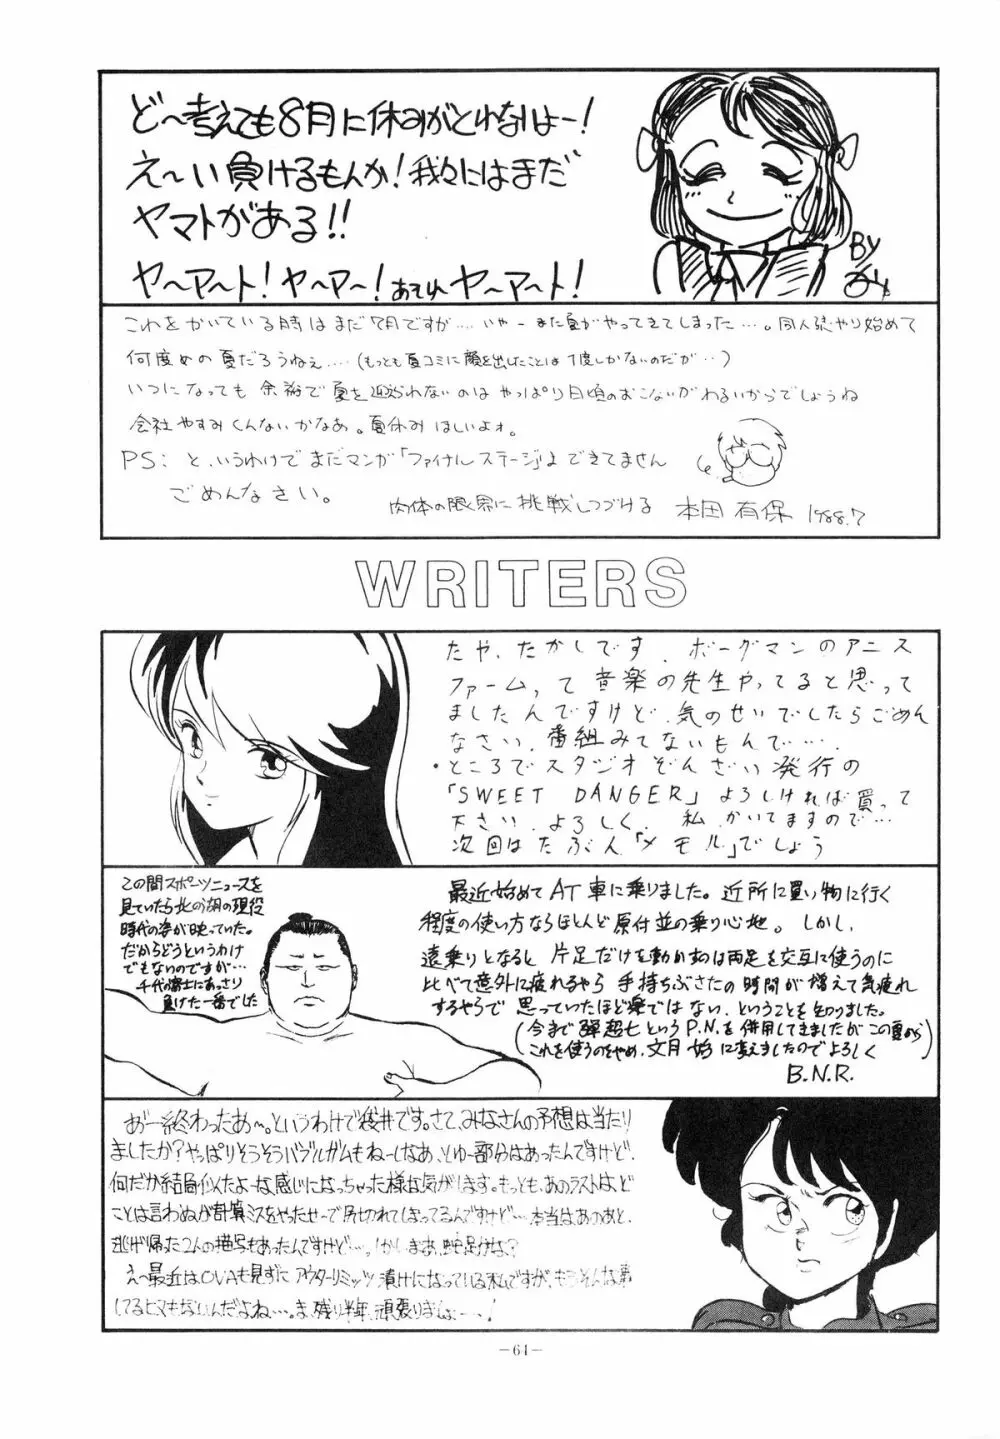 ど〜考えても8月に休みがとれないよー!
え〜い負けるもんか!我々にはまだ
ヤマトがある!!
ヤ〜ア〜ト!ヤ〜ア〜!あそれヤ〜ア〜ト!
BY
これをかいている時はまだ7月ですが....いやーまた夏がやってきてしまった....。同人誌やり始めて
何度めの夏だろうねぇ....(もっとも夏コミに顔を出したことは1度しかないのだが..)
いつになっても余裕で夏を迎えられないのはやっぱり日頃のおこないがわるいからでしょうね
会社やすみくんないかなあ。夏休みほしいよォ。
PS:と、いうわけでまだマンガ「ファイナルステージ」はできてません
ごめんなさい。
肉体の限界に挑戦しつづける 本田有保 1988.7
WRITERS
たや、たかしです. ボーグマンのアニス
ファーム,って音楽の先生やってると思って
ましたんですけど、気のせいでしたらごめん
なさい. 番組みてないもんで....
・ところでスタジオぞんざい発行の
「SWEET DANGER」よろしければ買って
下さい. よろしく. 私、かいてますので...
次回はたぶん「メモル」でしょう
この間スポーツニュースを
見ていたら北の湖の現役
時代の姿が映っていた。
だからどうというわけ
でもないのですが...
千代の富士にあっさり
負けた一番でした
最近始めてAT車に乗りました。近所に買い物に行く
程度の使い方ならほとんど原付並の乗り心地。しかし、
遠乗りとなると片足だけを動かすのは両足を交互に使うのに
比べて意外に疲れるやら手持ちぶさたの時間が増えて気疲れ
するやらで思っていたほど楽ではない、ということを知りました。
(今まで弾超七というP.N.を併用してきましたがこの夏から
これを使うのをやめ、文月始に変えましたのでよろしく)
B.N.R.
あ゛ー終わったあ〜。というわけで袋井です。さて、みなさんの予想は当たり
ましたか?やっぱりそうそうバブルガムもねーしなあ、とゆー部分はあったんですけど、
何だか結局似たよーな感じになっちゃった様な気がします。もっとも、あのラストは、ど
ことは言わぬが計算ミスをやったせーで尻切れてしまってるんですけど...本当は、あのあと、
逃げ帰った2人の描写もあったんですけど...。しかしまあ、蛇足かな?
え〜最近はOVAも見ずにアウターリミッツ漬けになっている私ですが、もうそんな事
してるヒマもないんだよね...。ま、残り半年、頑張りましょー!
—64—